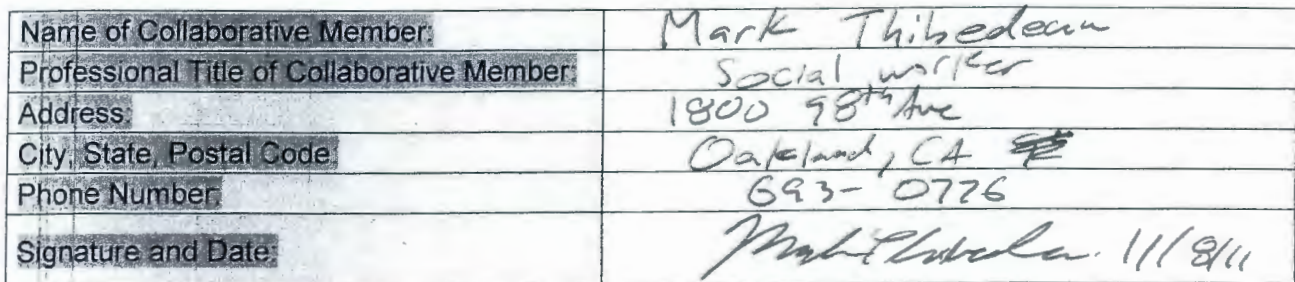 Name of Collaborative Member: Mark Thibedeau
Professional Title of Collaborative Member: Social worker
Address: 1800 98th Ave
City, State, Postal Code: Oakland, CA
Phone Number: 693-0776
Signature and Date: 11/8/11